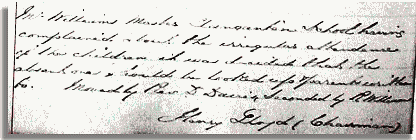 Mr Williams Master Llangunnor School having
complained about the irregular attendance
of the children it was decided that the
absent ones should be looked up &
to. Moved by Revd D Davies, seconded by R William
Henry Lloyd (Chairman)